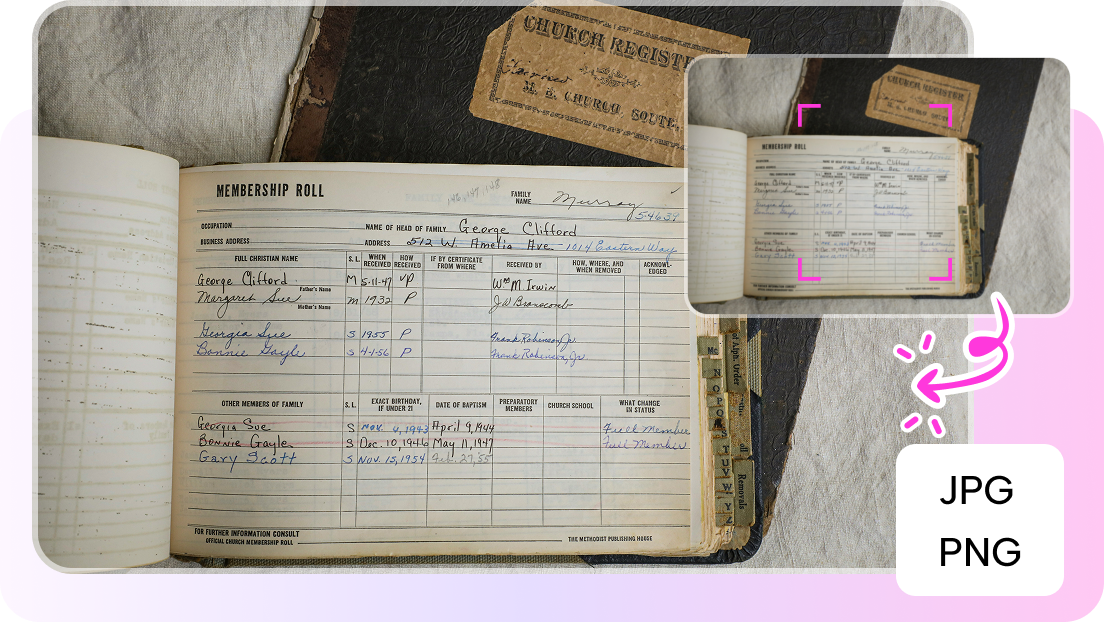 CHURCH REGISTER
M. E. CHURCH, SOUTH,
MEMBERSHIP ROLL
146, 147, 148
FAMILY NAME Murray
54639
OCCUPATION NAME OF HEAD OF FAMILY George Clifford
BUSINESS ADDRESS ADDRESS 512 W. Amelia Ave. - 1014 Eastern Way
FULL CHRISTIAN NAME S. L. WHEN RECEIVED HOW RECEIVED IF BY CERTIFICATE FROM WHERE RECEIVED BY HOW, WHERE, AND WHEN REMOVED ACKNOWL- EDGED
George Clifford M 5-11-47 VP Wm M. Irwin
Father's Name
Margaret Sue m 1932 P J.W. Branscomb
Mother's Name
Georgia Sue S 1955 P Frank Robinson, Jr.
Bonnie Gayle S 4-1-56 P Frank Robinson, Jr.
OTHER MEMBERS OF FAMILY S. L. EXACT BIRTHDAY, IF UNDER 21 DATE OF BAPTISM PREPARATORY MEMBERS CHURCH SCHOOL WHAT CHANGE IN STATUS
Georgia Sue S Nov. 4, 1943 April 9, 1944 Full Member
Bonnie Gayle S Dec. 10, 1946 May 11, 1947 Full Member
Gary Scott S Nov. 15, 1954 Feb. 27, 55
FOR FURTHER INFORMATION CONSULT
OFFICIAL CHURCH MEMBERSHIP ROLL THE METHODIST PUBLISHING HOUSE
of Alph. Order
N
O
P
T
U
V
W
Y
Z
Removals
CHURCH REGISTER
MEMBERSHIP ROLL
Murray
George Clifford
JPG
PNG